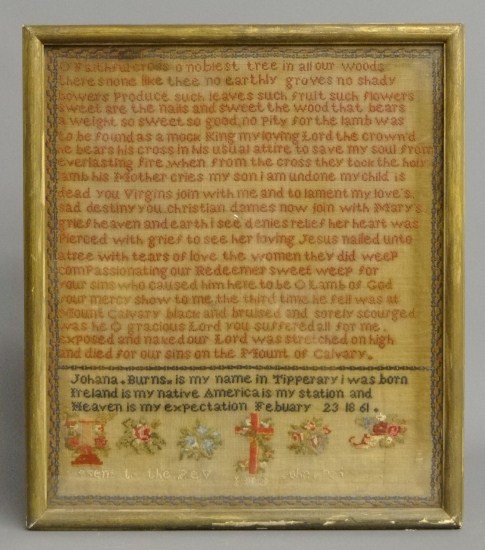 O Faithful cross o noblest tree in all our woods
theres none like thee no earthly groves no shady
bowers Produce such leaves such fruit such flowers
sweet are the nails and sweet the wood that bears
a weight so sweet so good no Pity for the lamb was
to be found as a mock King my loving Lord the crown'd
he bears his cross in his usual attire to save my soul from
everlasting fire when from the cross they took the holy
Lamb his Mother cries my son i am undone my child is
dead you Virgins join with me and to lament my love's
sad destiny you christian dames now join with Mary's
grief heaven and earth i see denies relief her heart was
Pierced with grief to see her loving Jesus nailed unto
a tree with tears of love the women they did weep
comPassionating our Redeemer sweet weep for
your sins who caused him here to be O Lamb of God
your mercy show to me the third time he fell was at
Mount Calvary black and bruised and sorely scourged
was he O gracious Lord you suffered all for me
exposed and naked our Lord was stretched on high
and died for our sins on the Mount of Calvary.
Johana. Burns. is my name in Tipperary i was born
Ireland is my native America is my station and
Heaven is my expectation Febuary 23 1861.
to the Rev